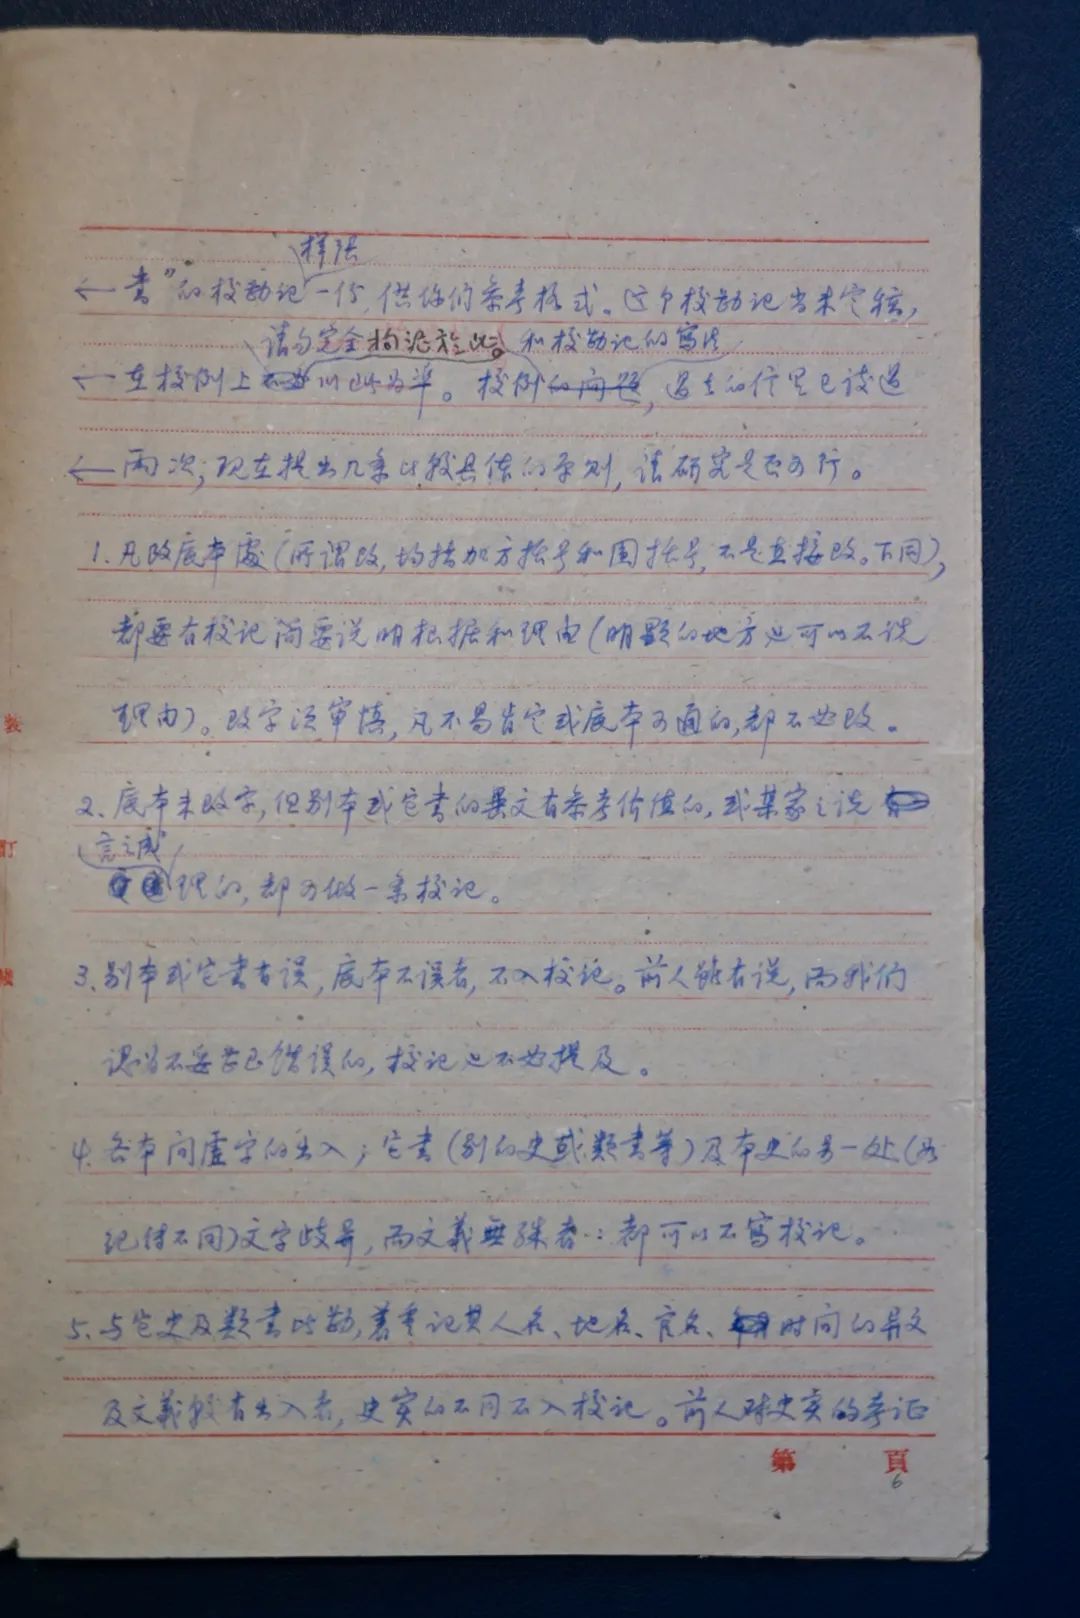 样张
←书”的校勘记一份,供你们参考格式。这个校勘记尚未定稿,
请勿完全拘泥於此。和校勘记的写法
←在校例上不必以此为準。校例的问题,过去的信里已谈过
←两次;现在提出几条比较具体的原则,请研究是否可行。
1.凡改底本處(所谓改,均指加方括号和圆括号,不是直接改。下同),
都要有校记简要说明根据和理由(明显的地方也可以不说
理由)。改字须审慎,凡不易肯定或底本可通的,都不必改。
2.底本未改字,但别本或它书的異文有参考价值的,或某家之说
言之成
理的,都可做一条校记。
3.别本或它书有误,底本不误者,不入校记。前人虽有说,而我们
认为不妥当或错误的,校记也不必提及。
4.各本间虚字的出入;它书(别的史或类書等)及本史的另一处(如
纪传不同)文字歧异,而文義無殊者:都可以不写校记。
5.与它史及类書比勘,着重记其人名、地名、官名、时间的异文
及文義较有出入者,史实的不同不入校记。前人对史实的考证
第 頁
6
裝
訂
線